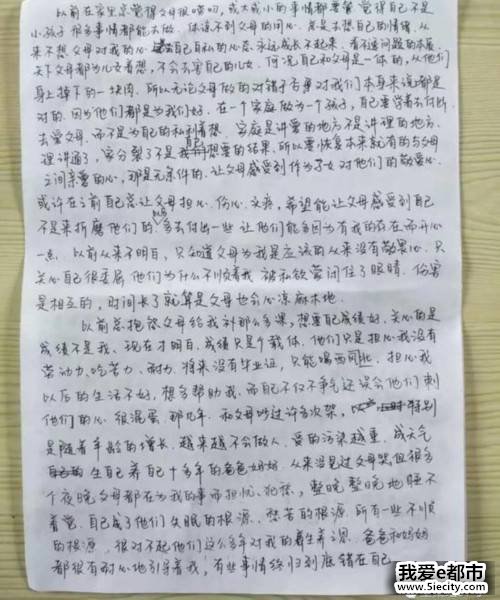 以前在家里总觉得父母很啰嗦，或大或小的事情都要管 觉得自己不是
小孩子 很多事情都能去做 体谅不到父母的用心，总是去想自己的情绪，从
来不想父母对我的心 自己自私的心态 永远成长不起来，看不透问题的本质
天下父母都为儿女着想，不会去害自己的儿女 何况自己和父母是一体的，从他们
身上掉下的一块肉，所以无论父母做的对错于否单对我们本身来说都是
对的，因为他们都是为我们好，在一个家庭做为一个孩子，自己要学着去付出
去爱父母，而不是为自己的私利着想，家庭是讲爱的地方不是讲理的地方，
理讲通了，家分裂了不是自己想要的结果，所以要恢复本来就有的与父母
之间亲爱的心，那是无条件的，让父母感受到作为子女对他们的敬爱心，
或许在之前自己总让父母担心，伤心，哀疼，希望能让父母感受到自己
不是来折磨他们的，以后多去付出一些 让他们能多因为有我的存在而开心
一点 以前从来不明白，只知道父母为我是应该的从来没有敬畏心，只
关心自己很委屈，他们为什么不顺着我 被私欲蒙闭住了眼睛，伤害
是相互的，时间长了就算是父母也会心凉麻木地
以前总抱怨父母给我补那么多课，想要自己成绩好，关心的是
成绩不是我，现在才明白，成绩只是个载体，他们只是担心我没有
劳动力，吃苦力，耐力，将来没有毕业证，只能喝西北，担心我
以后的生活不好，想多帮助我，而自己不仅不争气还误会他们 刺
他们的心 很混蛋 那几年，和父母吵过许多次架，特别
是随着年龄的增长，越来越不会做人，爱的污染越重，成天气
生自己养自己十多年的爸爸妈妈，从来没见过父母哭但很多
个夜晚父母都在为我的事而担忧，犯愁，整晚整晚地睡不
着觉，自己成了他们失眠的根源，愁苦的根源，所有一些不顺
的根源，很对不起他们这么多年对我的养生养育，爸爸和妈妈
都很有耐心地引导着我，有些事情终归到底错在自己
我爱e都市
www.5iecity.com